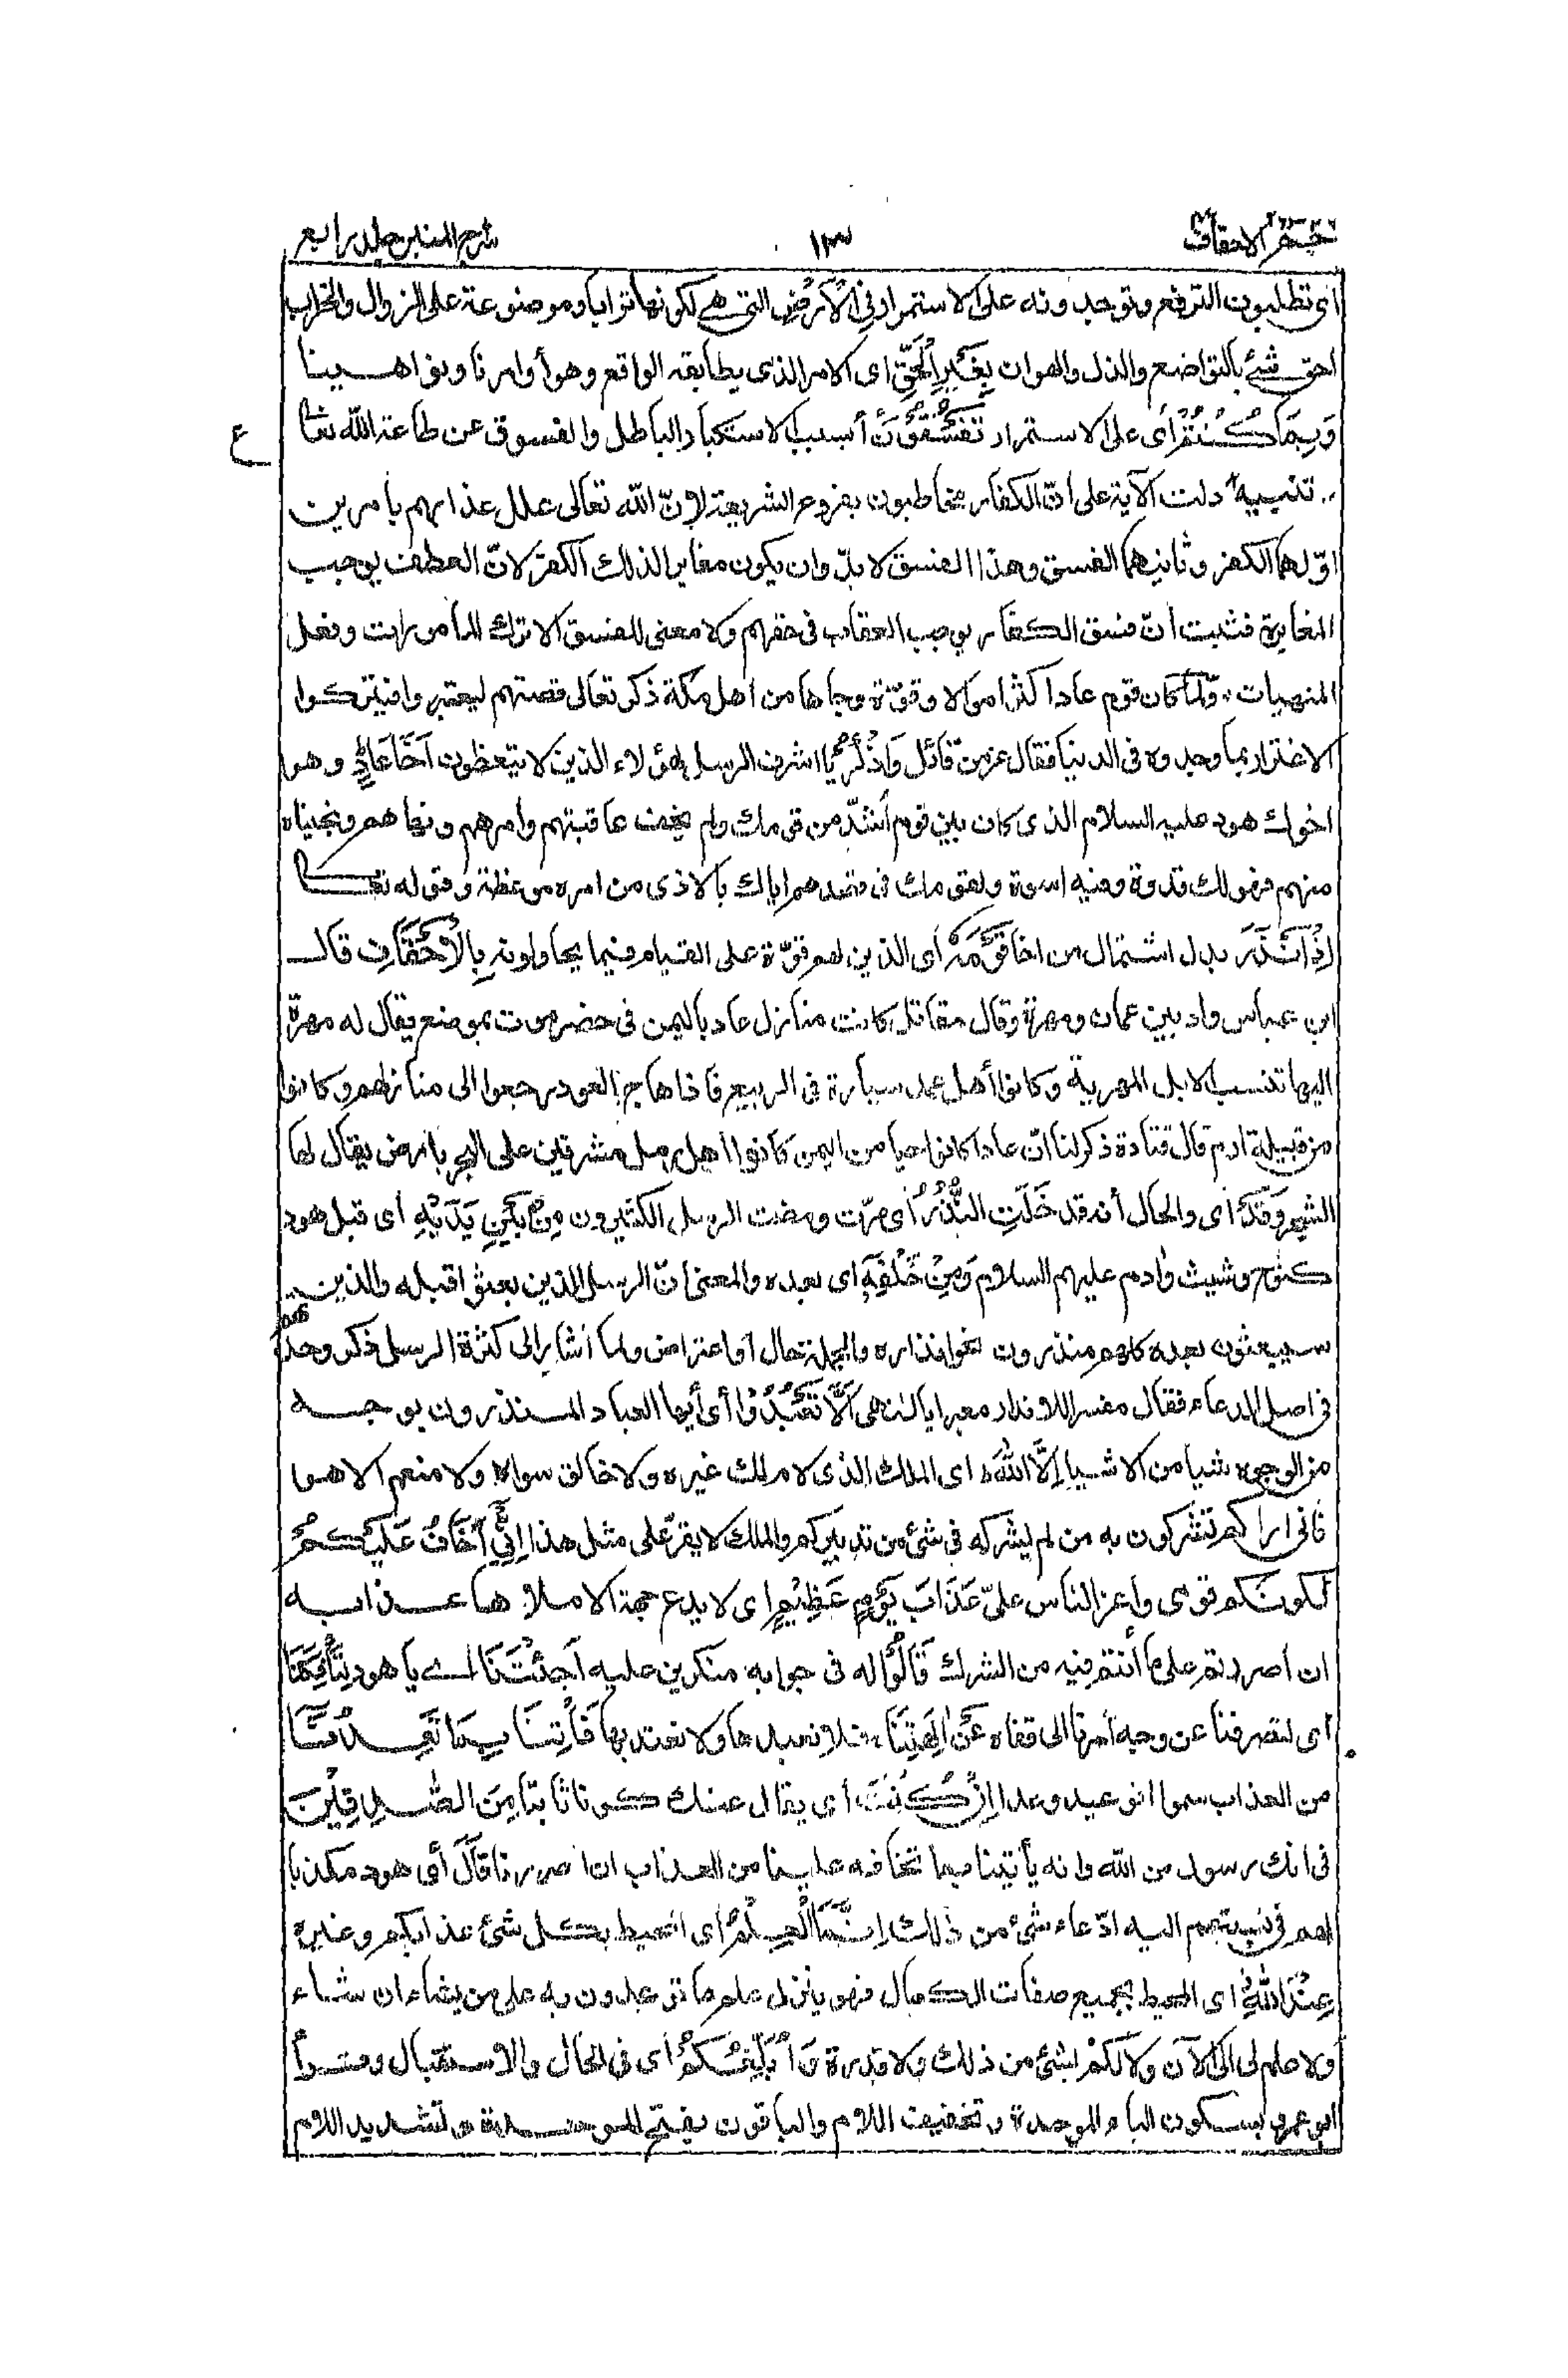 حٰمٓ الاحقاف ١٣ السراج المنير جلد رابع
أى تطلبون الترفع وتوجدونه على الاستمرار فِي الْأَرْضِ التى هى لكونها ترابا وموضوعة على الزوال والخراب
احق شئ بالتواضع والذل والهوان بِغَيْرِ الْحَقِّ اى الامر الذى يطابقه الواقع وهو أوامرنا ونواهينا
وَبِمَا كُنْتُمْ أى على الاستمرار تَفْسُقُوْنَ أى بسبب الاستكبار الباطل والفسوق عن طاعة الله تعا
ع
تنبيه دلت الآية على أنّ الكفار مخاطبون بفروع الشريعة لانّ الله تعالى علل عذابهم بأمرين
اوّلهما الكفر وثانيهما الفسق وهذا الفسق لا بدّ وان يكون مغاير الذلك الكفر لانّ العطف يوجب
المغايرة فثبت انّ فسق الكفار يوجب العقاب فى حقهم ولا معنى للفسق الا ترك المأمورات وفعل
المنهيات ولما كان قوم عاد اكثر اموالا وقوّة وجاها من اهل مكة ذكر تعالى قصتهم ليعتبروا فيتركوا
الاغترار بما وجدوه فى الدنيا فقال عز من قائل وَاذْكُرْ يا اشرف الرسل لهؤلاء الذين لا يتعظون اَخَا عَادٍ وهو
اخوك هود عليه السلام الذى كان بين قوم أشدّ من قومك ولم يخف عاقبتهم وامرهم ونهاهم ونجيناه
منهم فهو لك قدوة وفيه اسوة ولقومك فى قصدهم اياك بالاذى من امره موعظة وقوله تعا
اِذْ اَنْذَرَ بدل اشتمال من اخا قَوْمَهٗ أى الذين لهم قوّة على القيام فيما يحاولونه بِالْاَحْقَافِ قال
ابن عباس واد بين عمان ومهرة وقال مقاتل كانت منازل عاد باليمن فى حضرموت بموضع يقال له مهرة
اليها تنسب الابل المهرية وكانوا أهل عمد سيارة فى الربيع فاذا هاج العود رجعوا الى منازلهم وكانوا
من قبيلة ارم قال قتادة ذكر لنا انّ عادا كانوا حيا من اليمن كانوا اهل رمل مشرفين على البحر بارض يقال لها
الشحر وَقَدْ اى والحال أنه قد خَلَتِ النُّذُرُ أى مرّت ومضت الرسل الكثيرون مِنْ بَيْنِ يَدَيْهِ اى قبل هود
كنوح وشيث وآدم عليهم السلام وَمِنْ خَلْفِهٖ اى بعده والمعنى انّ الرسل الذين بعثوا قبله والذين
سيبعثون بعده كلهم منذرون نحو انذاره والجملة حال أو اعتراض ولما أشار الى كثرة الرسل ذكر وحدتهم
فى اصل الدعاء فقال مفسرا للانذار معبرا بالنهى اَلَّا تَعْبُدُوْا أى أيها العباد المنذرون بوجه
من الوجوه شيأ من الاشيا اِلَّا اللّٰهَ اى الملك الذى لا ملك غيره ولا خالق سواه ولا منعم الا هو
فانى اراكم تشركون به من لم يشركه فى شئ من تدبيركم والملك لا يقرّ على مثل هذا اِنِّيْ اَخَافُ عَلَيْكُمْ
لكونكم قومى وأعز الناس علىّ عَذَابَ يَوْمٍ عَظِيْمٍ اى لا يدع جهة الا ملأها عذابه
ان اصررتم على ما أنتم فيه من الشرك قَالُوْا له فى جوابه منكرين عليه اَجِئْتَنَا اے يا هود لِتَأْفِكَنَا
أى لتصرفنا عن وجه أمرنا الى قفاه عَنْ اٰلِهَتِنَا فلا نعبدها ولا نعتد بها فَأْتِنَا بِمَا تَعِدُنَا
من العذاب سموا الوعيد وعدا اِنْ كُنْتَ أى يقال عنك كونا ثابتا مِنَ الصّٰدِقِيْنَ
فى انك رسول من الله وانه يأتينا بما تخافه علينا من العذاب ان اصررنا قَالَ أى هود مكذبا
لهم فى نسبتهم اليه ادّعاء شئ من ذلك اِنَّمَا الْعِلْمُ أى المحيط بكل شئ عذابكم وغيره
عِنْدَ اللّٰهِ اى المحيط بجميع صفات الكمال فهو ينزل علم ما توعدون به على من يشاء ان شاء
ولا علم لى الى الآن ولا لكم بشئ من ذلك ولا قدرة وَاُبَلِّغُكُمْ أى فى الحال والاستقبال وقرأ
ابو عمرو بسكون الباء الموحدة وتخفيف اللام والباقون بفتح الموحدة وتشديد اللام